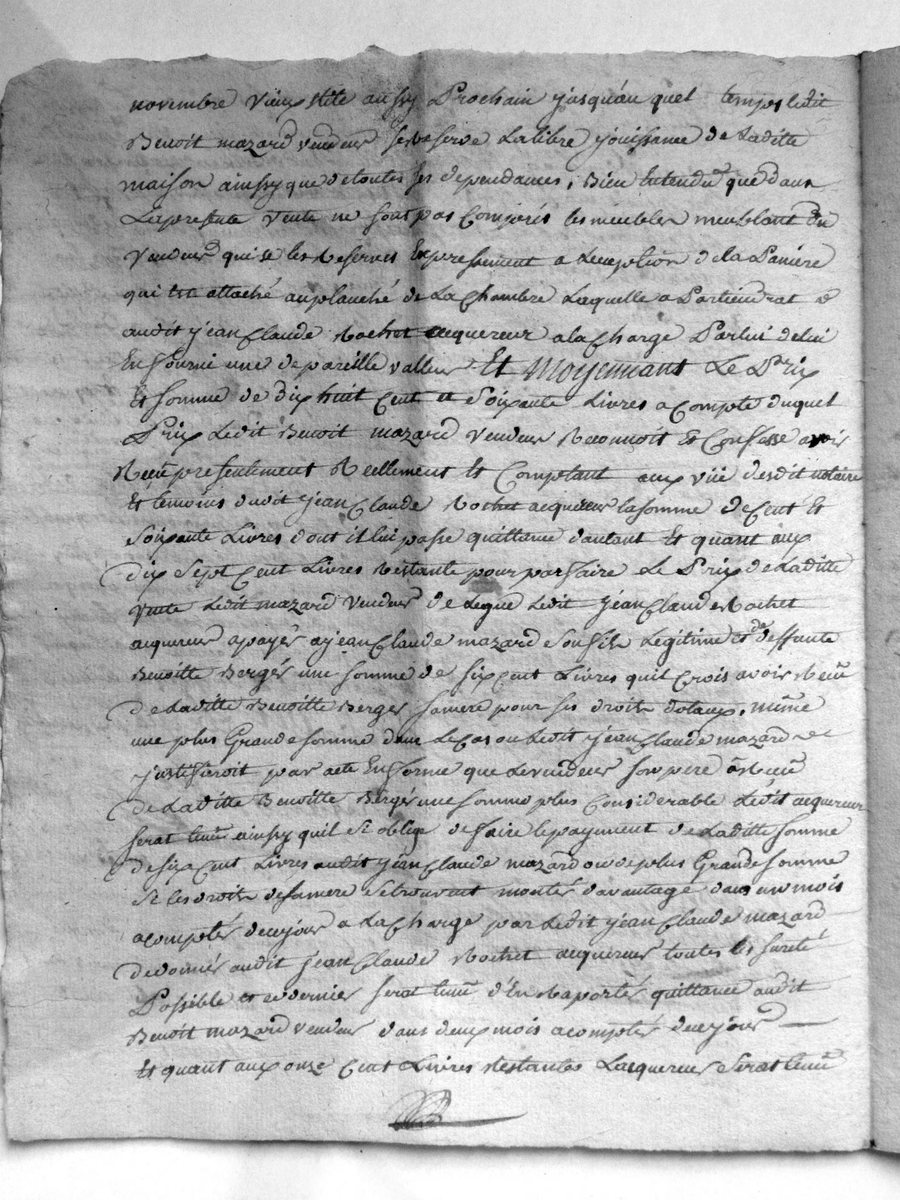 novembre vieux stile aussy Prochain jusqu'au quel temps ledit
Benoit mazard vendeur se Reserve La libre jouissance de Laditte
maison ainssy que de toutes ses dependances, Bien Entendu que dans
La presente vente ne sont pas Compris les meubles meublant du
vendeur qui se les Reserves Expressement a L'exception de la Panière
qui Est attaché au planché de La Chambre Laquelle apartiendrat
audit jean Claude Rochet acquereur a la Charge Par lui de lui
En fourni une de pareille valleur Et Moyennant Le Prix
Et somme de dix huit Cent et soixante Livres a Compte duquel
Prix Ledit Benoit mazard vendeur Reconnoit Et Confesse avoir
Reçu presentement Réellement Et Comptant aux vüe desdit notaire
Et temoins dudit jean Claude Rochet acquereur la somme de Cent Et
Soixante Livres dont il lui passe quittance d'autant Et quant aux
dix Sept Cent Livres Restante pour parfaire Le Prix de Laditte
vente Ledit mazard vendeur delegue Ledit jean Claude Rochet
acquereur a payer a jean Claude mazard son fils Legitime et de deffunte
Benoitte Berger une somme de six Cent Livres quil Crois avoir Reçu
de Laditte Benoitte Berger sa mere pour ses droits dotaux, même
une plus Grande somme dans Le Cas ou Ledit jean Claude mazard
justifieroit par acte En forme que Le vendeur son pere a Reçu
de Laditte Benoitte Berger une somme plus Considerable Ledit acquereur
serat tenu ainssy quil s'oblige de faire le payement de Laditte somme
de six Cent Livres audit jean Claude mazard ou de plus Grande somme
si les droit de sa mere se trouvent monter davantage dans un mois
a compter de ce jour a La Charge par Ledit jean Claude mazard
de donner audit jean Claude Rochet acquereur toutes les sureté
Possible et ce dernier serat tenu d'En Raporter quittance audit
Benoit mazard vendeur dans deux mois a compter de ce jour
Et quant aux onze Cent Livres Restantes Lacquereur serat tenu